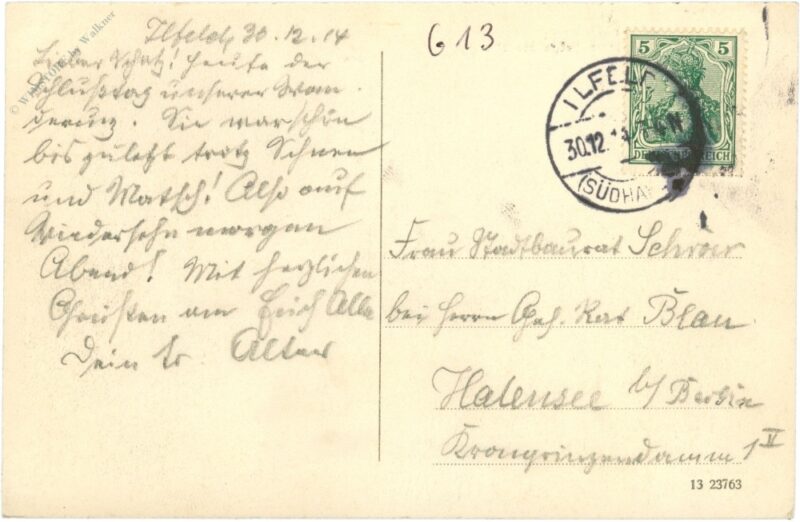 Ilfeld, 30.12.14
Lieber Schatz! Heute der
Schlußtag unserer Wan
derung. Sie war schön
bis zuletzt trotz Schnee
und Matsch! Also auf
Wiedersehn morgen
Abend! Mit herzlichen
Grüßen an Erich Alle
Dein tr. Alter
613
5 5
DEUTSCHES REICH
ILFELD
30.12.14
(SÜDHA
Frau Stadtbaurat
bei Herrn Geh. Rat Blau
Halensee b/Berlin
Kronprinzendamm 1 V
13 23763
Walkner